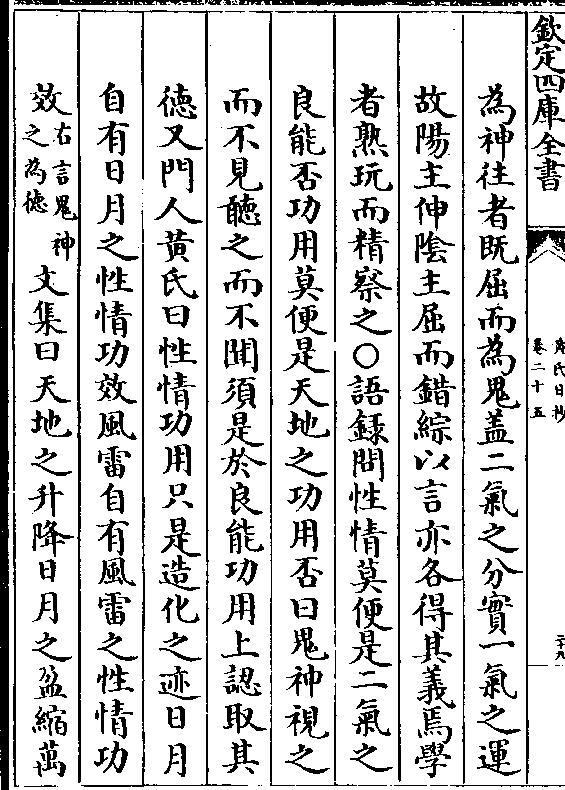 欽定四庫全書
黄氏日抄
卷二十五
二十九
為神往者既屈而為鬼盖二氣之分實一氣之運
故陽主伸陰主屈而錯綜以言亦各得其義焉學
者熟玩而精察之○語録問性情莫便是二氣之
良能否功用莫便是天地之功用否曰鬼神視之
而不見聽之而不聞須是於良能功用上認取其
德又門人黄氏曰性情功用只是造化之迹日月
自有日月之性情功效風雷自有風雷之性情功
效右言鬼神之為德文集曰天地之升降日月之盈縮萬